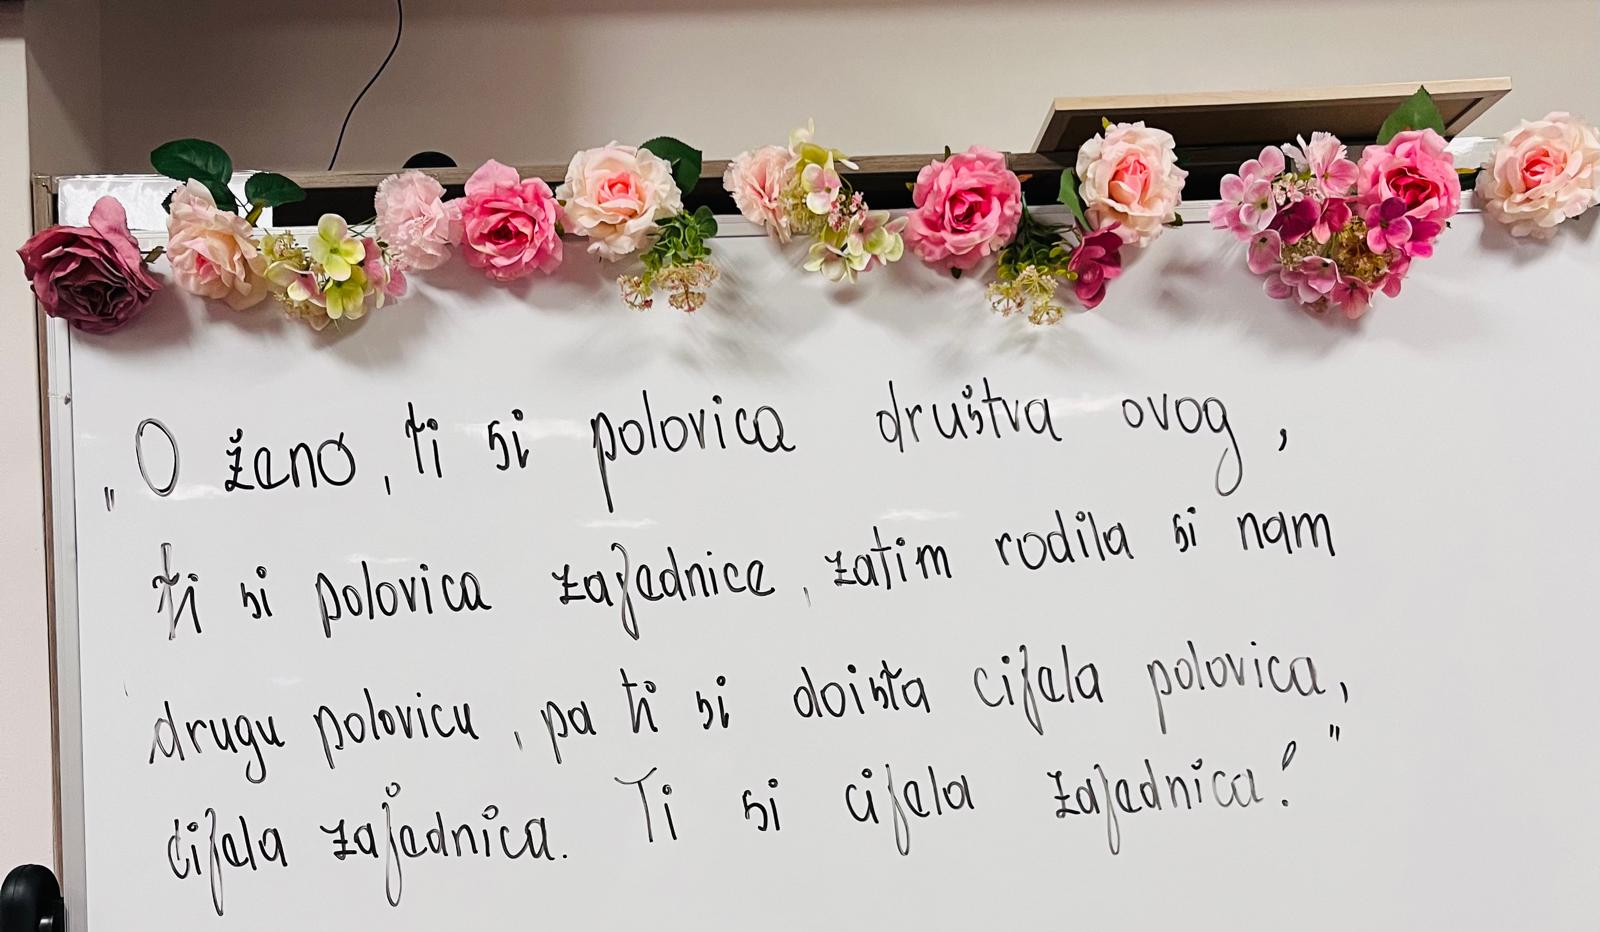 „O ženo, ti si polovica društva ovog,
ti si polovica zajednice, zatim rodila si nam
drugu polovicu, pa ti si doista cijela polovica,
cijela zajednica. Ti si cijela zajednica!"